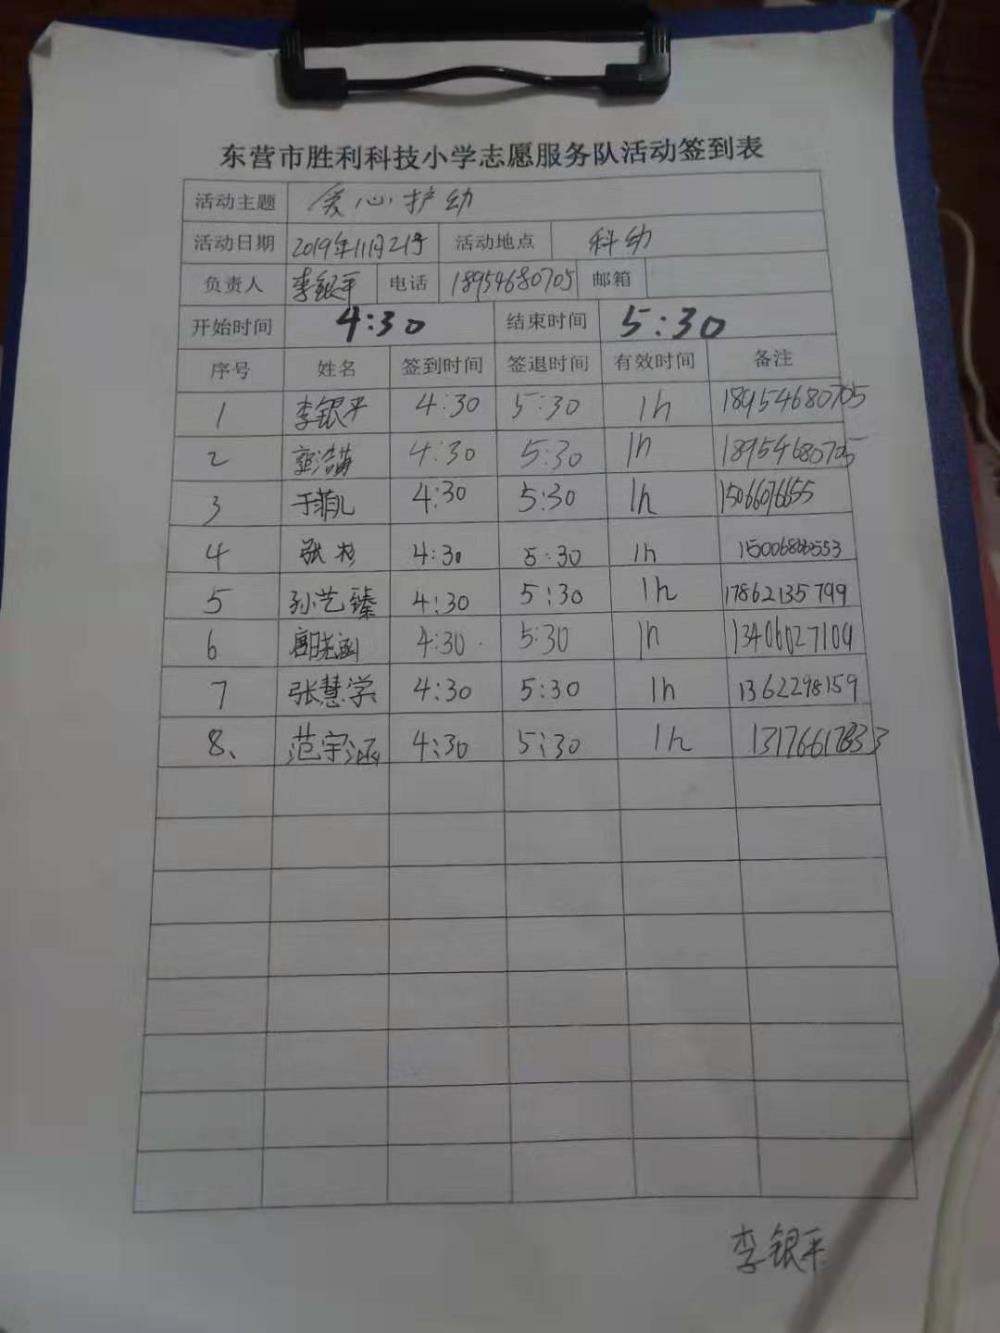 东营市胜利科技小学志愿服务队活动签到表
活动主题 爱心护幼
活动日期 2019年11月21号 活动地点 科幼
负责人 李银平 电话 18954680705 邮箱
开始时间 4:30 结束时间 5:30
序号 姓名 签到时间 签退时间 有效时间 备注
1 李银平 4:30 5:30 1h 18954680705
2 4:30 5:30 1h 18954680705
3 于菲儿 4:30 5:30 1h
4 张杉 4:30 5:30 1h
5 孙艺臻 4:30 5:30 1h 17862135799
6 4:30 5:30 1h 13406027109
7 张慧学 4:30 5:30 1h 1362298159
8、 范宇涵 4:30 5:30 1h
李银平